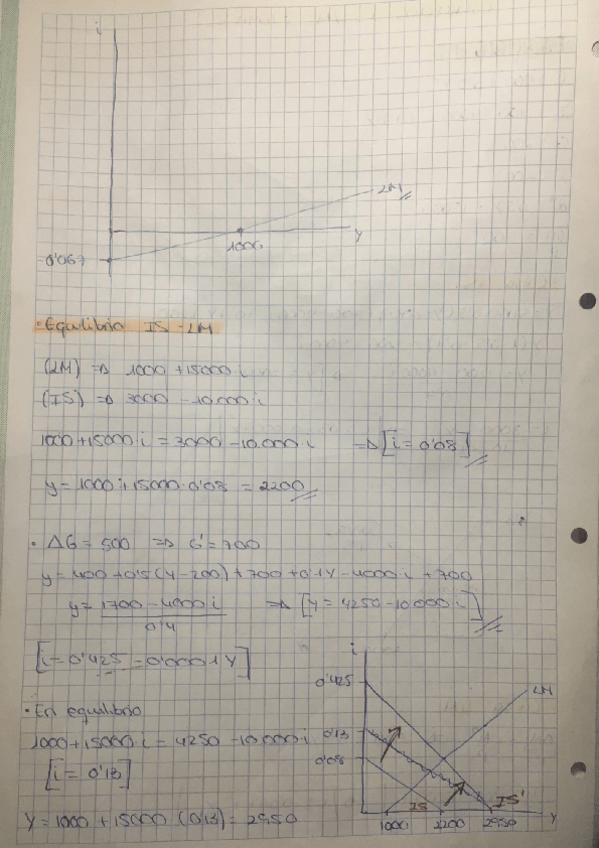 i
LM
Y
1000
-0'067
· Equilibrio IS-LM
(LM) ⇒ 1000 + 15000 i
(IS) ⇒ 3000 - 10.000 i
1000 + 15000 i = 3000 - 10.000 i ⇒ [i = 0'08]
y = 1000 + 15000 · 0'08 = 2200
· ΔG = 500 ⇒ G' = 700
y = 400 + 0'5 (Y - 200) + 700 + 0'1Y - 4000 i + 700
y = 1700 - 4000 i ⇒ [Y = 4250 - 10.000 i]
0'4
[i = 0'425 - 0'0001 Y]
· En equilibrio
1000 + 15000 i = 4250 - 10.000 i
[i = 0'13]
Y = 1000 + 15000 (0'13) = 2950
i
0'425
LM
0'13
0'08
IS
IS'
1000
2200
2950
Y